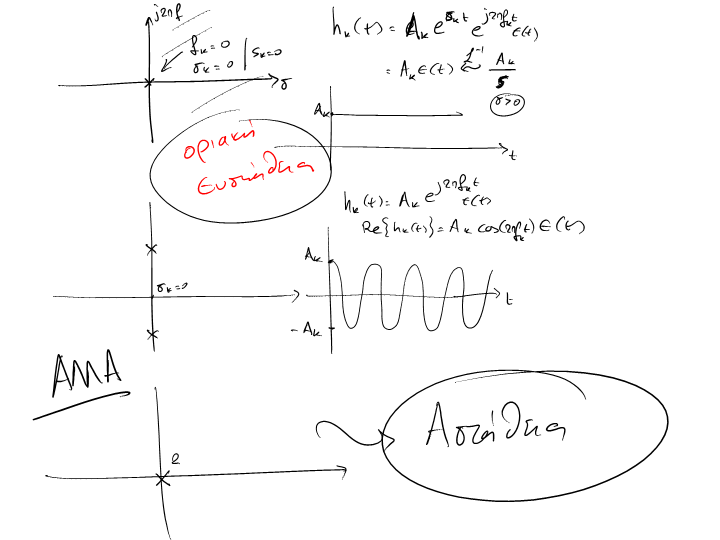 j2πf
f_k = 0
σ_k = 0 | s_k = 0
σ
h_k(t) = A_k e^{σ_k t} e^{j2πf_k t} ε(t)
= A_k ε(t) L^{-1} A_k / s
σ>0
A_k
t
οριακή
ευστάθεια
h_k(t) = A_k e^{j2πf_k t} ε(t)
Re{h_k(t)} = A_k cos(2πf_k t) ε(t)
σ_k = 0
A_k
- A_k
t
ΑΜΑ
2
Αστάθεια